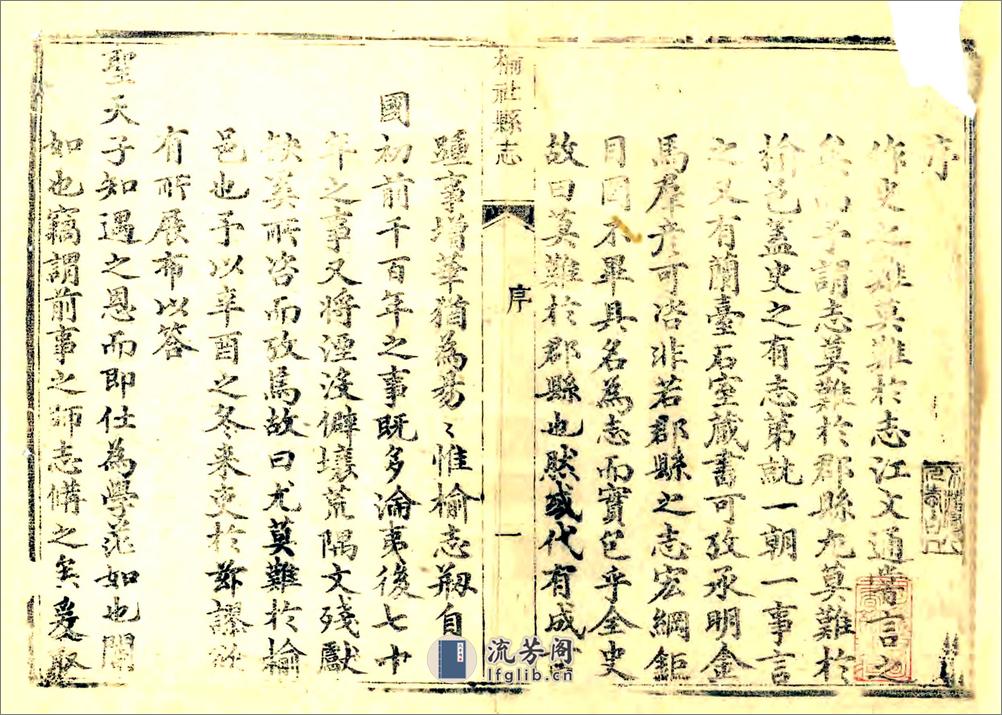 序
作史之難莫難於志江文通嘗言之
矣而予謂志莫難於郡縣尤莫難於
揄邑蓋史之有志第就一朝一事言
之又有蘭臺石室藏書可攷承明金
馬羣彥可咨非若郡縣之志宏綱鉅
目罔不畢具名為志而實包乎全史
故曰莫難於郡縣也然或代有成
榆社縣志
序
一
踵事增華猶為易〻惟榆志剏自
國初前千百年之事既多淪軼後七十
年之事又將湮沒僻壤荒隅文殘獻
缺奚所咨而攷焉故曰尤莫難於榆
邑也予以辛酉之冬来吏於茲謬
有所展布以答
聖天子知遇之恩而即仕為學茫如也閒
如也竊謂前事之師志備之矣爰聚
流芳阁
lfglib.cn